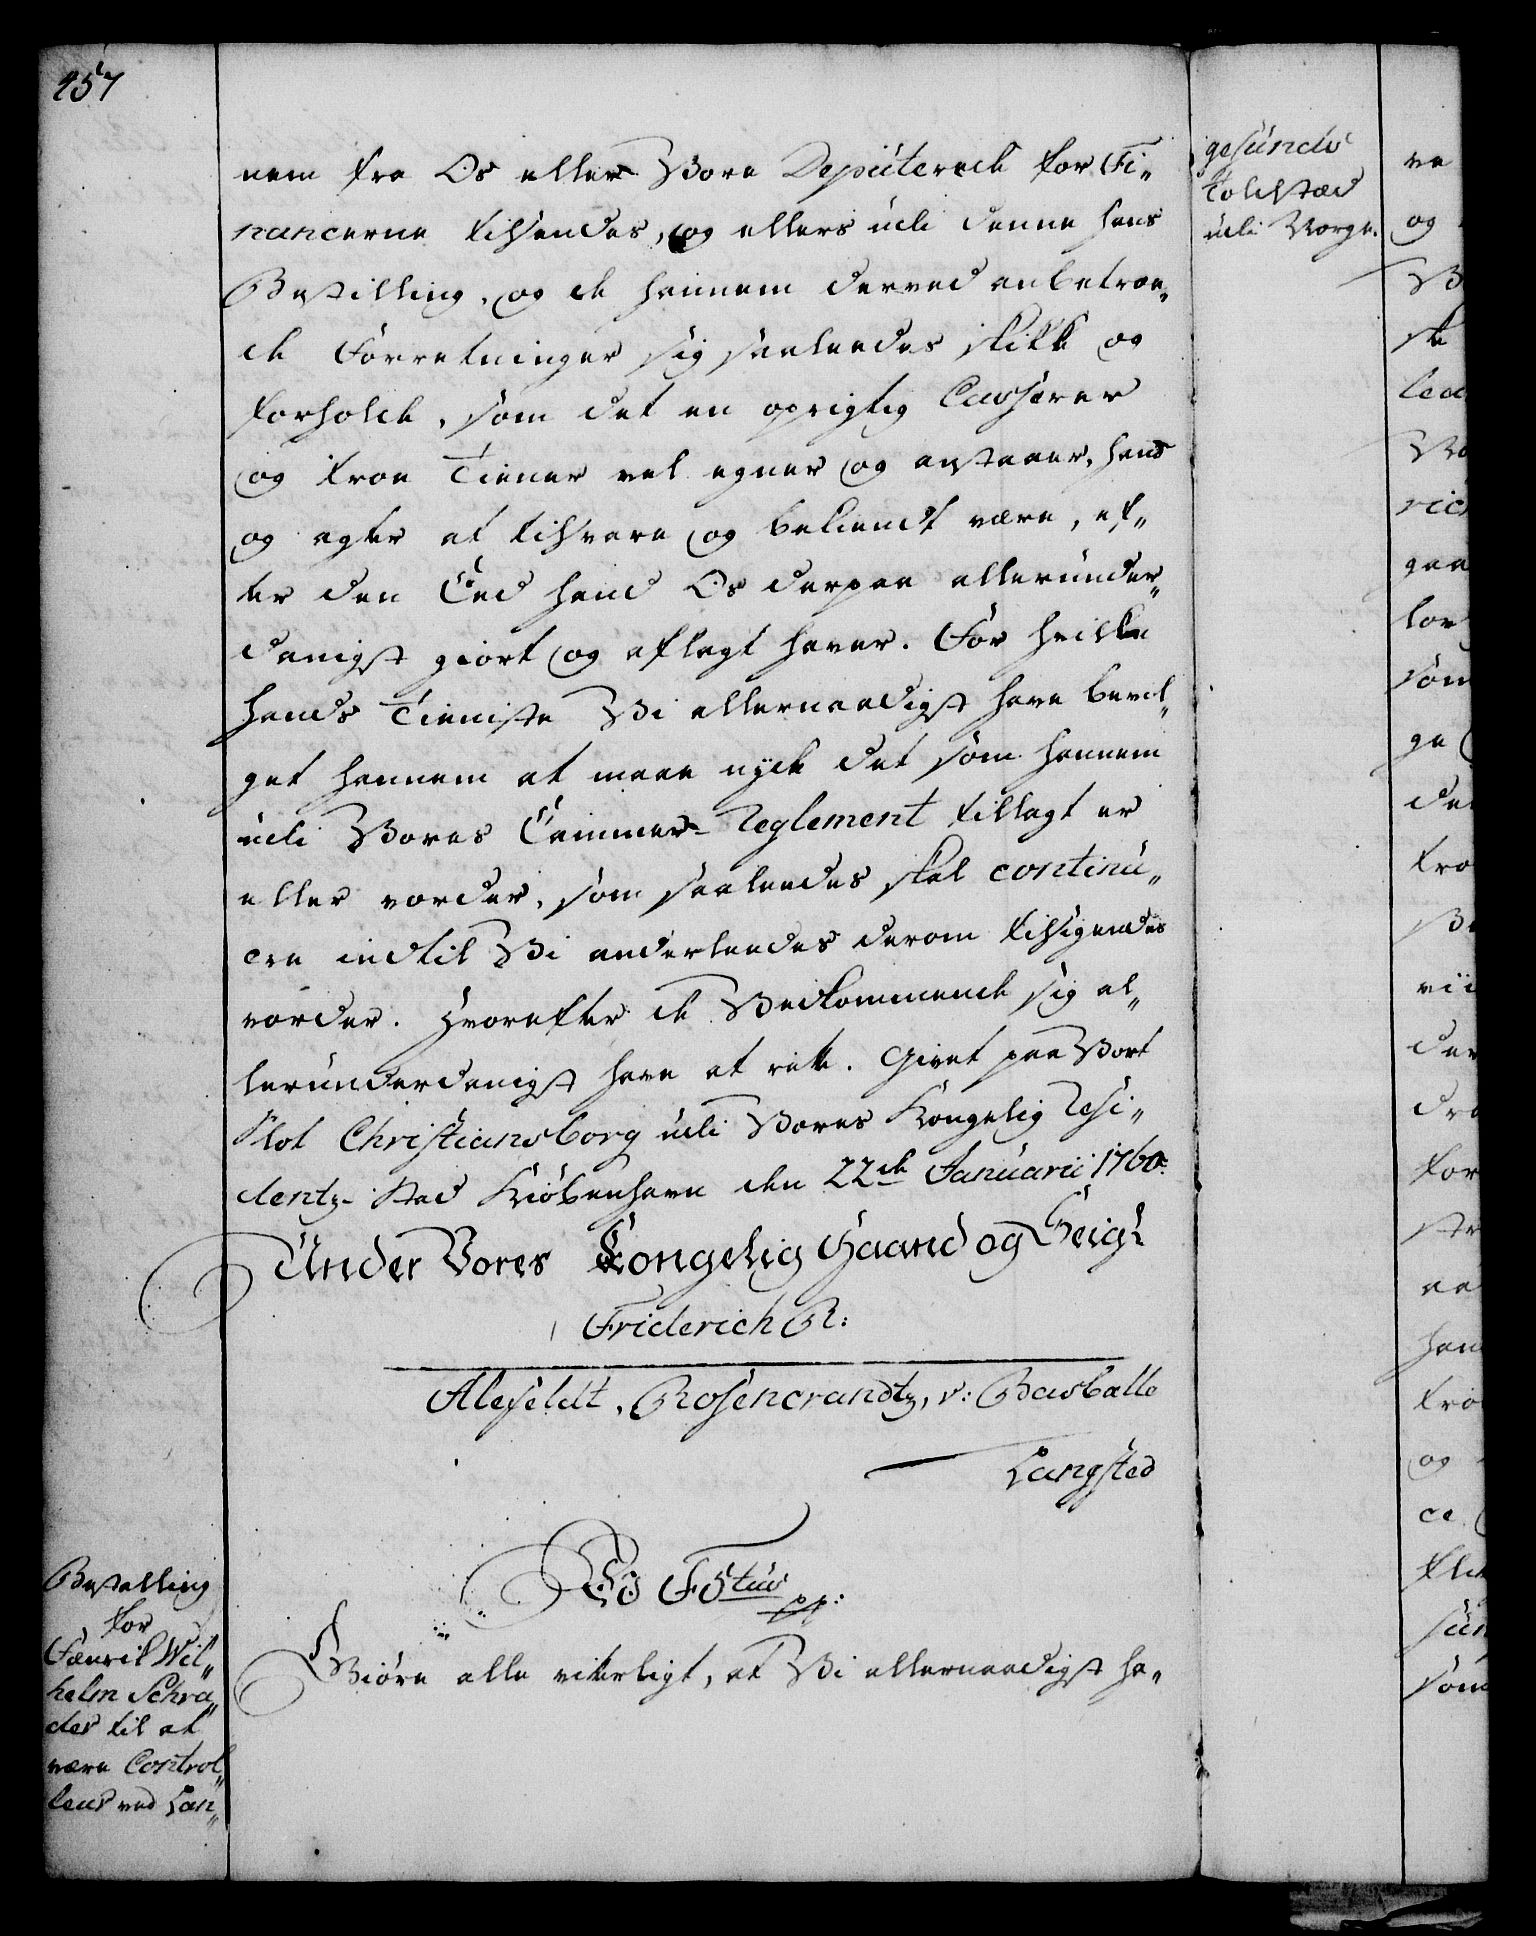 457
nem fra Os eller Vore Deputerede for Fi„
nancerne tilsendes, og ellers udi denne hans
Bestilling, og de hannem derved anbetroe„
de Forretninger sig saaledes skikke og
forholde, som det en oprigtig Casserer
og troe Tiener vel egner og anstaaer, hand
og agter at tilsvare og bekiendt være, ef„
ter den Eed hand Os derpaa allerunder„
danigst giort og aflagt haver. For hvilke
hands Tieniste Vi allernaadigst have bevil„
get hannem at maae nyde det som hannem
udi Vores Cammer-Reglement tillagt er
eller vorder, som saaledes skal continu„
ere indtil Vi anderledes derom tilsigendes
vorder. Hvorefter de Vedkommende sig al„
lerunderdanigst have at rette. Givet paa Vort
Slot Christiansborg udi Vores Kongelig Resi„
dentz-Stad Kiöbenhavn den 22de Januarii 1760.
Under Vores Kongelig Haand og Seigl
Friderich R:
Alefeldt, Rosencrandtz, v: Basballe
Langsted
Wo F5tus
pp:
Giöre alle viterligt, at Vi allernaadigst ha„
Bestalling
for
Fænrik Wil„
helm Schra„
der til at
være Control„
leur ved Lan„
gesunds
Toldsted
udi Norge.
ve
og
ske
lea
ric
gaa
som
ge
der
tro
vii
dra
for
str
han
tro
og
ce
sun
som